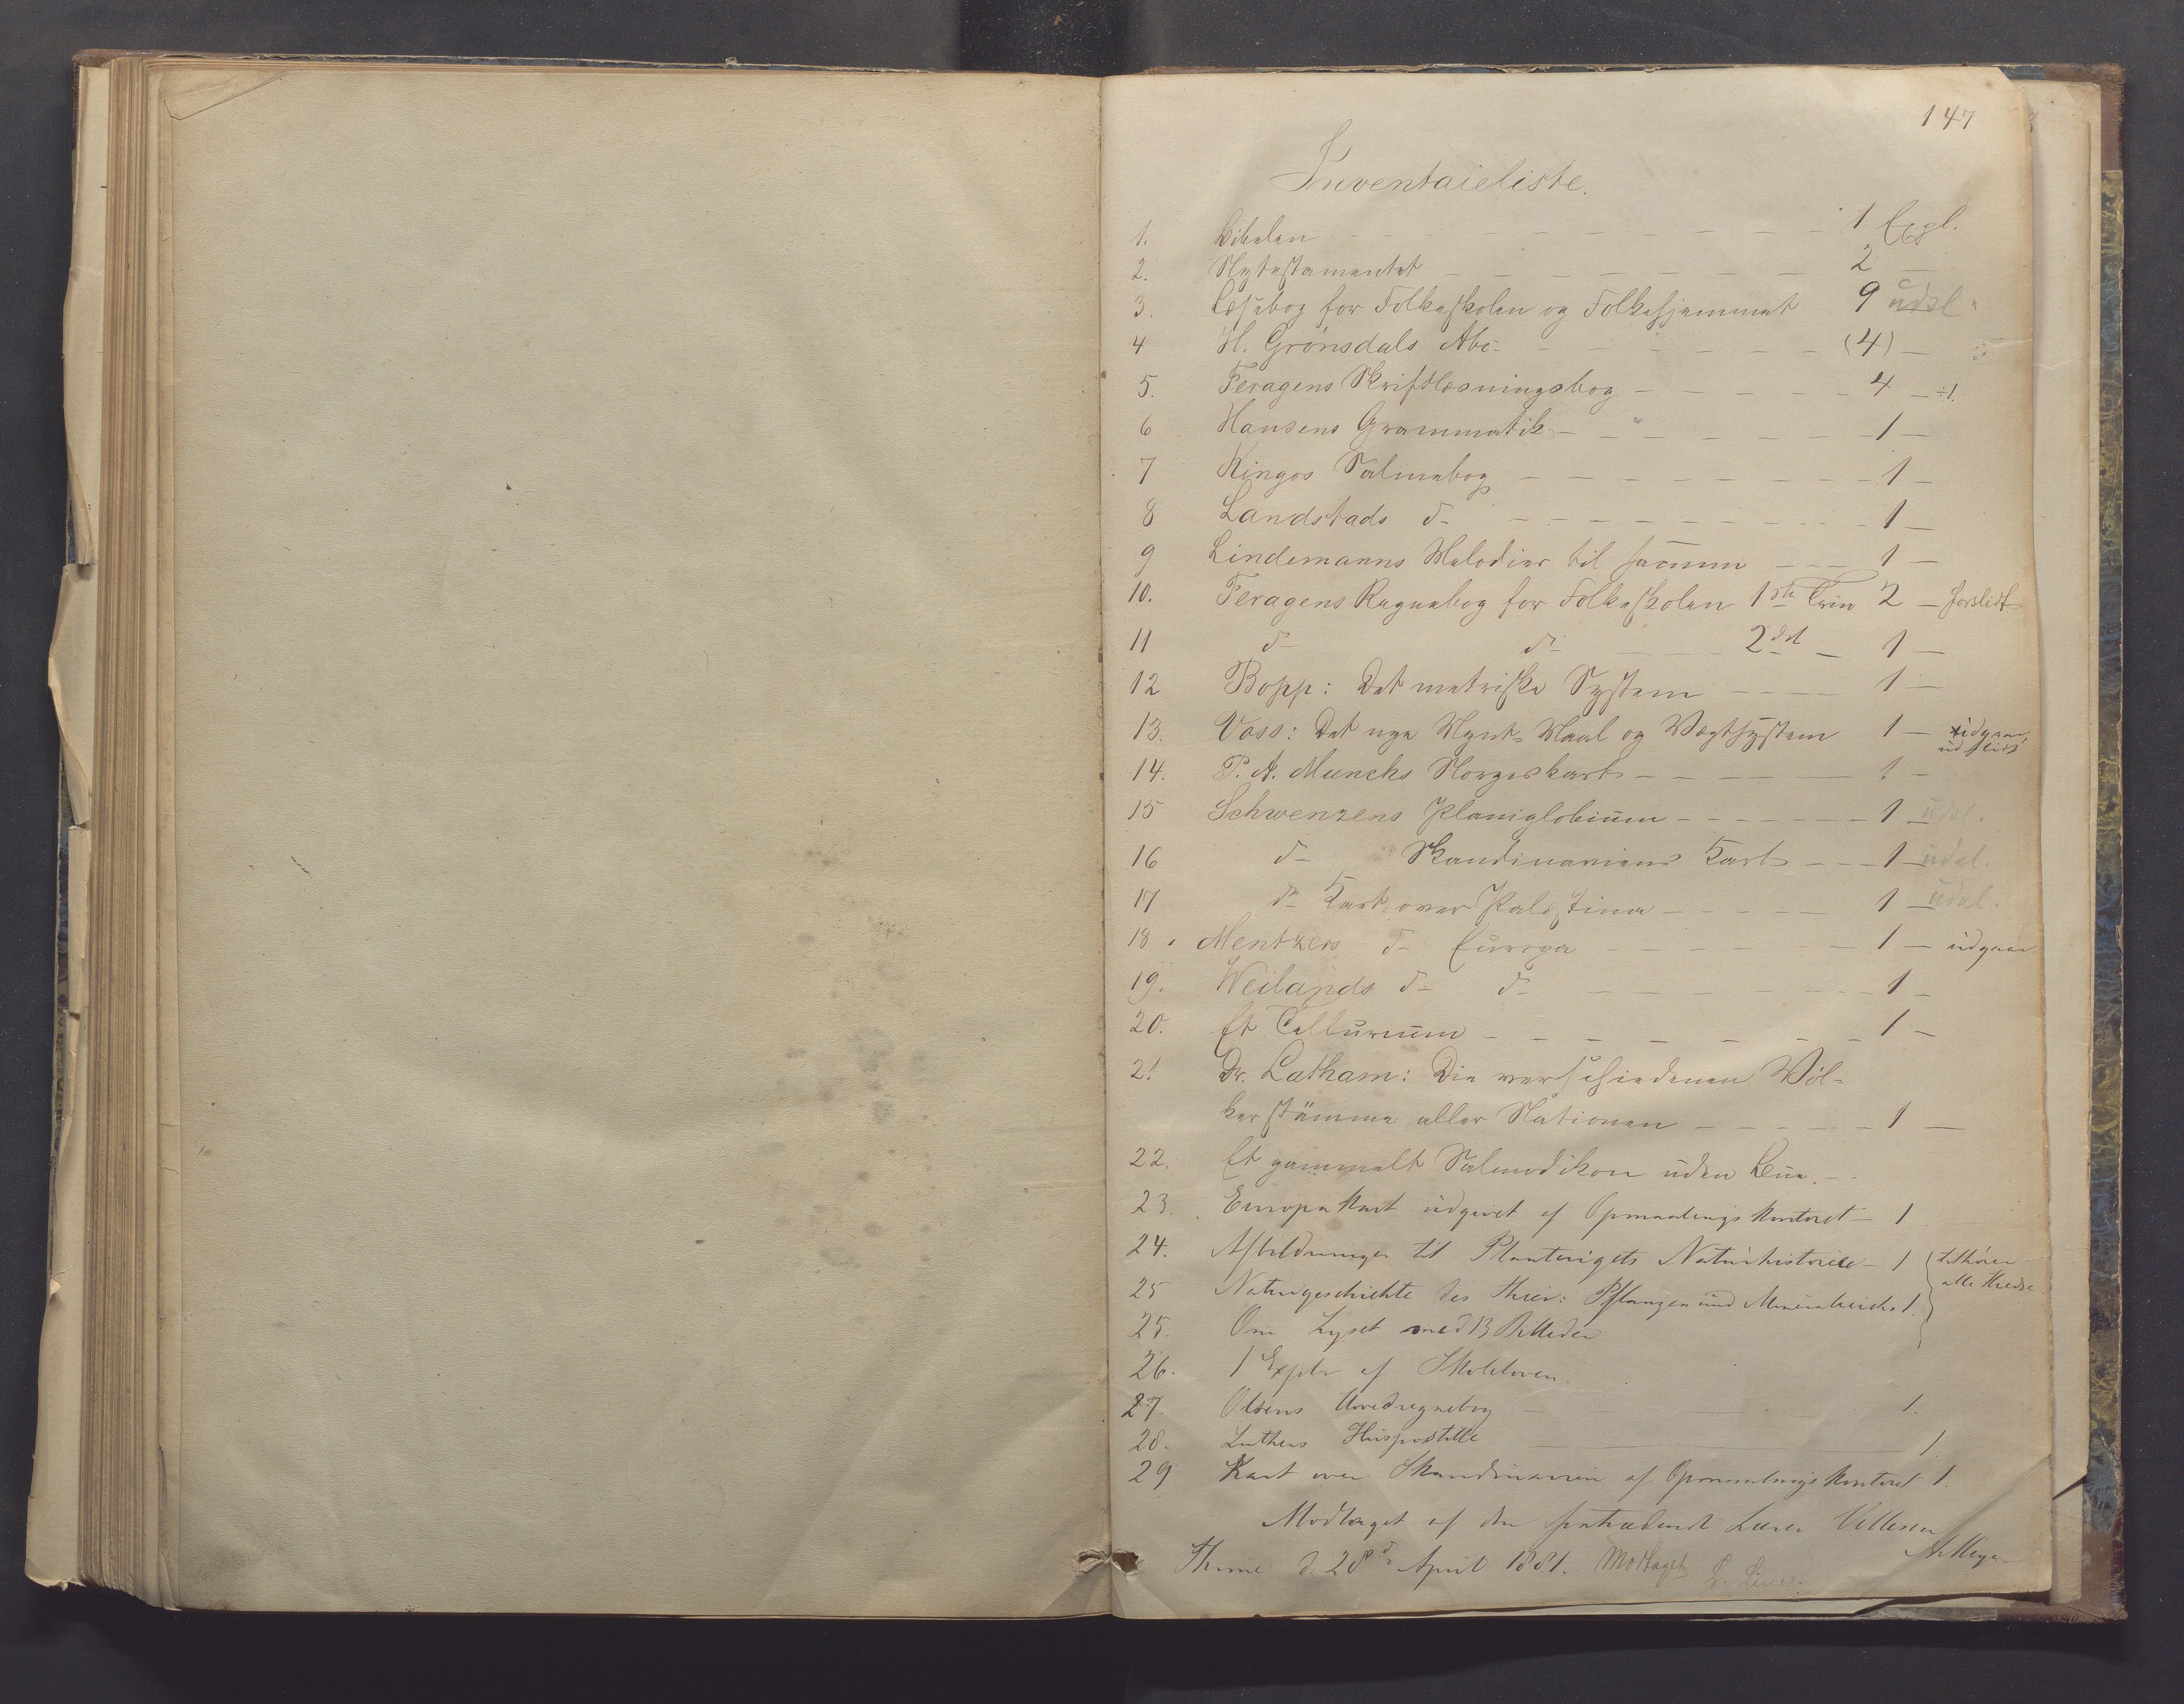 147
Inventarieliste.
1. Bibelen — — — 1 Expl.
2. Nytestamentet — — — 2 —
3. Læsebog for Folkeskolen og Folkehjemmet 9 udsl.
4 H. Grönsdals Abc — — — (4) —
5. Feragens Skriftlæsningsbog — — — 4 — ÷1.
6 Hansens Grammatik — — — 1 —
7 Kingos Salmebog — — — 1 —
8 Landstads do — — — 1 —
9 Lindemanns Melodier til samme — — — 1 —
10. Feragens Regnebog for Folkeskolen 1ste Trin 2 — forslidt
11 do do — — — 2det — 1 —
12 Bopp: Det metriske System — — — 1 —
13. Voss: Det nye Mynt- Maal og Vægtsystem 1 — udgaar, udslidt
14. P. A. Munchs Norgeskart — — — 1 —
15 Schwenzens Planiglobium — — — 1 — udsl.
16 do Skandinaviens Kart — — — 1 — udsl.
17 do Kart over Palæstina — — — 1 — udsl.
18 Mentzers do Europa — — — 1 — udgaar
19. Weilands do do — — — 1 —
20. Et Tellurium — — — 1 —
21 Dr. Latham: Die verschiedenen Völ-
kerstämme aller Nationen — — — 1 —
22. Et gammelt Salmodikon uden Bue. — —
23. Europakart udgivet af Opmaalingskontoret — 1
24. Afbildninger til Planterigets Naturhistorie — 1 tilhører
25 Naturgeschichte des Thier: Pflanzen und Mineralreichs 1. alle Kredse
25. Om Lyset med 13 Billeder
26. 1 Explr af Skoleloven.
27. Olsens Hovedregnebog — 1.
28. Luthers Huspostille — 1.
29 Kart over Skandinavien af Opmaalingskontoret 1.
Modtaget af den fratrædende Lærer Vellesen
Thime d. 28d April 1881. Modtaget